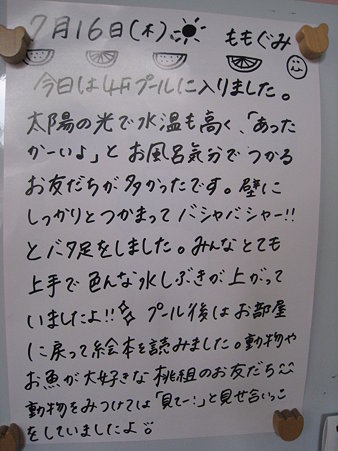 7月16日(木) ももぐみ
今日は4Fプールに入りました。
太陽の光で水温も高く、「あった
かーいよ」とお風呂気分でつかる
お友だちが多かったです。壁に
しっかりとつかまってバシャバシャー!!
とバタ足をしました。みんなとても
上手で色んな水しぶきが上がって
いましたよ!! プール後はお部屋
に戻って絵本を読みました。動物や
お魚が大好きな桃組のお友だち
動物をみつけては「見てー!」と見せ合いっこ
をしていましたよ。